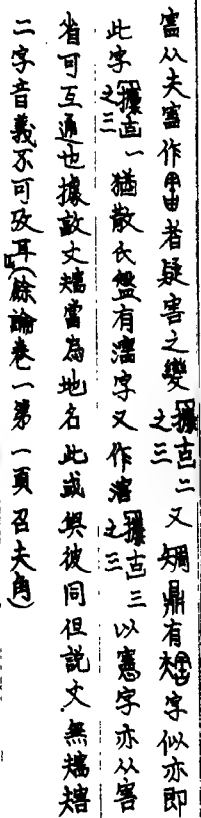 害从夫害作𤰩者疑害之變〔攈古二之三〕又𡚽鼎有𡚽字似亦即
此字〔攈古一之三〕猶散氏盤有㵯字又作㵯〔攈古三之三〕以憲字亦从害
省可互通也據敔文𡙇當為地名此或與彼同但説文無
二字音義不可攷耳（餘論卷一第一頁召夫角）